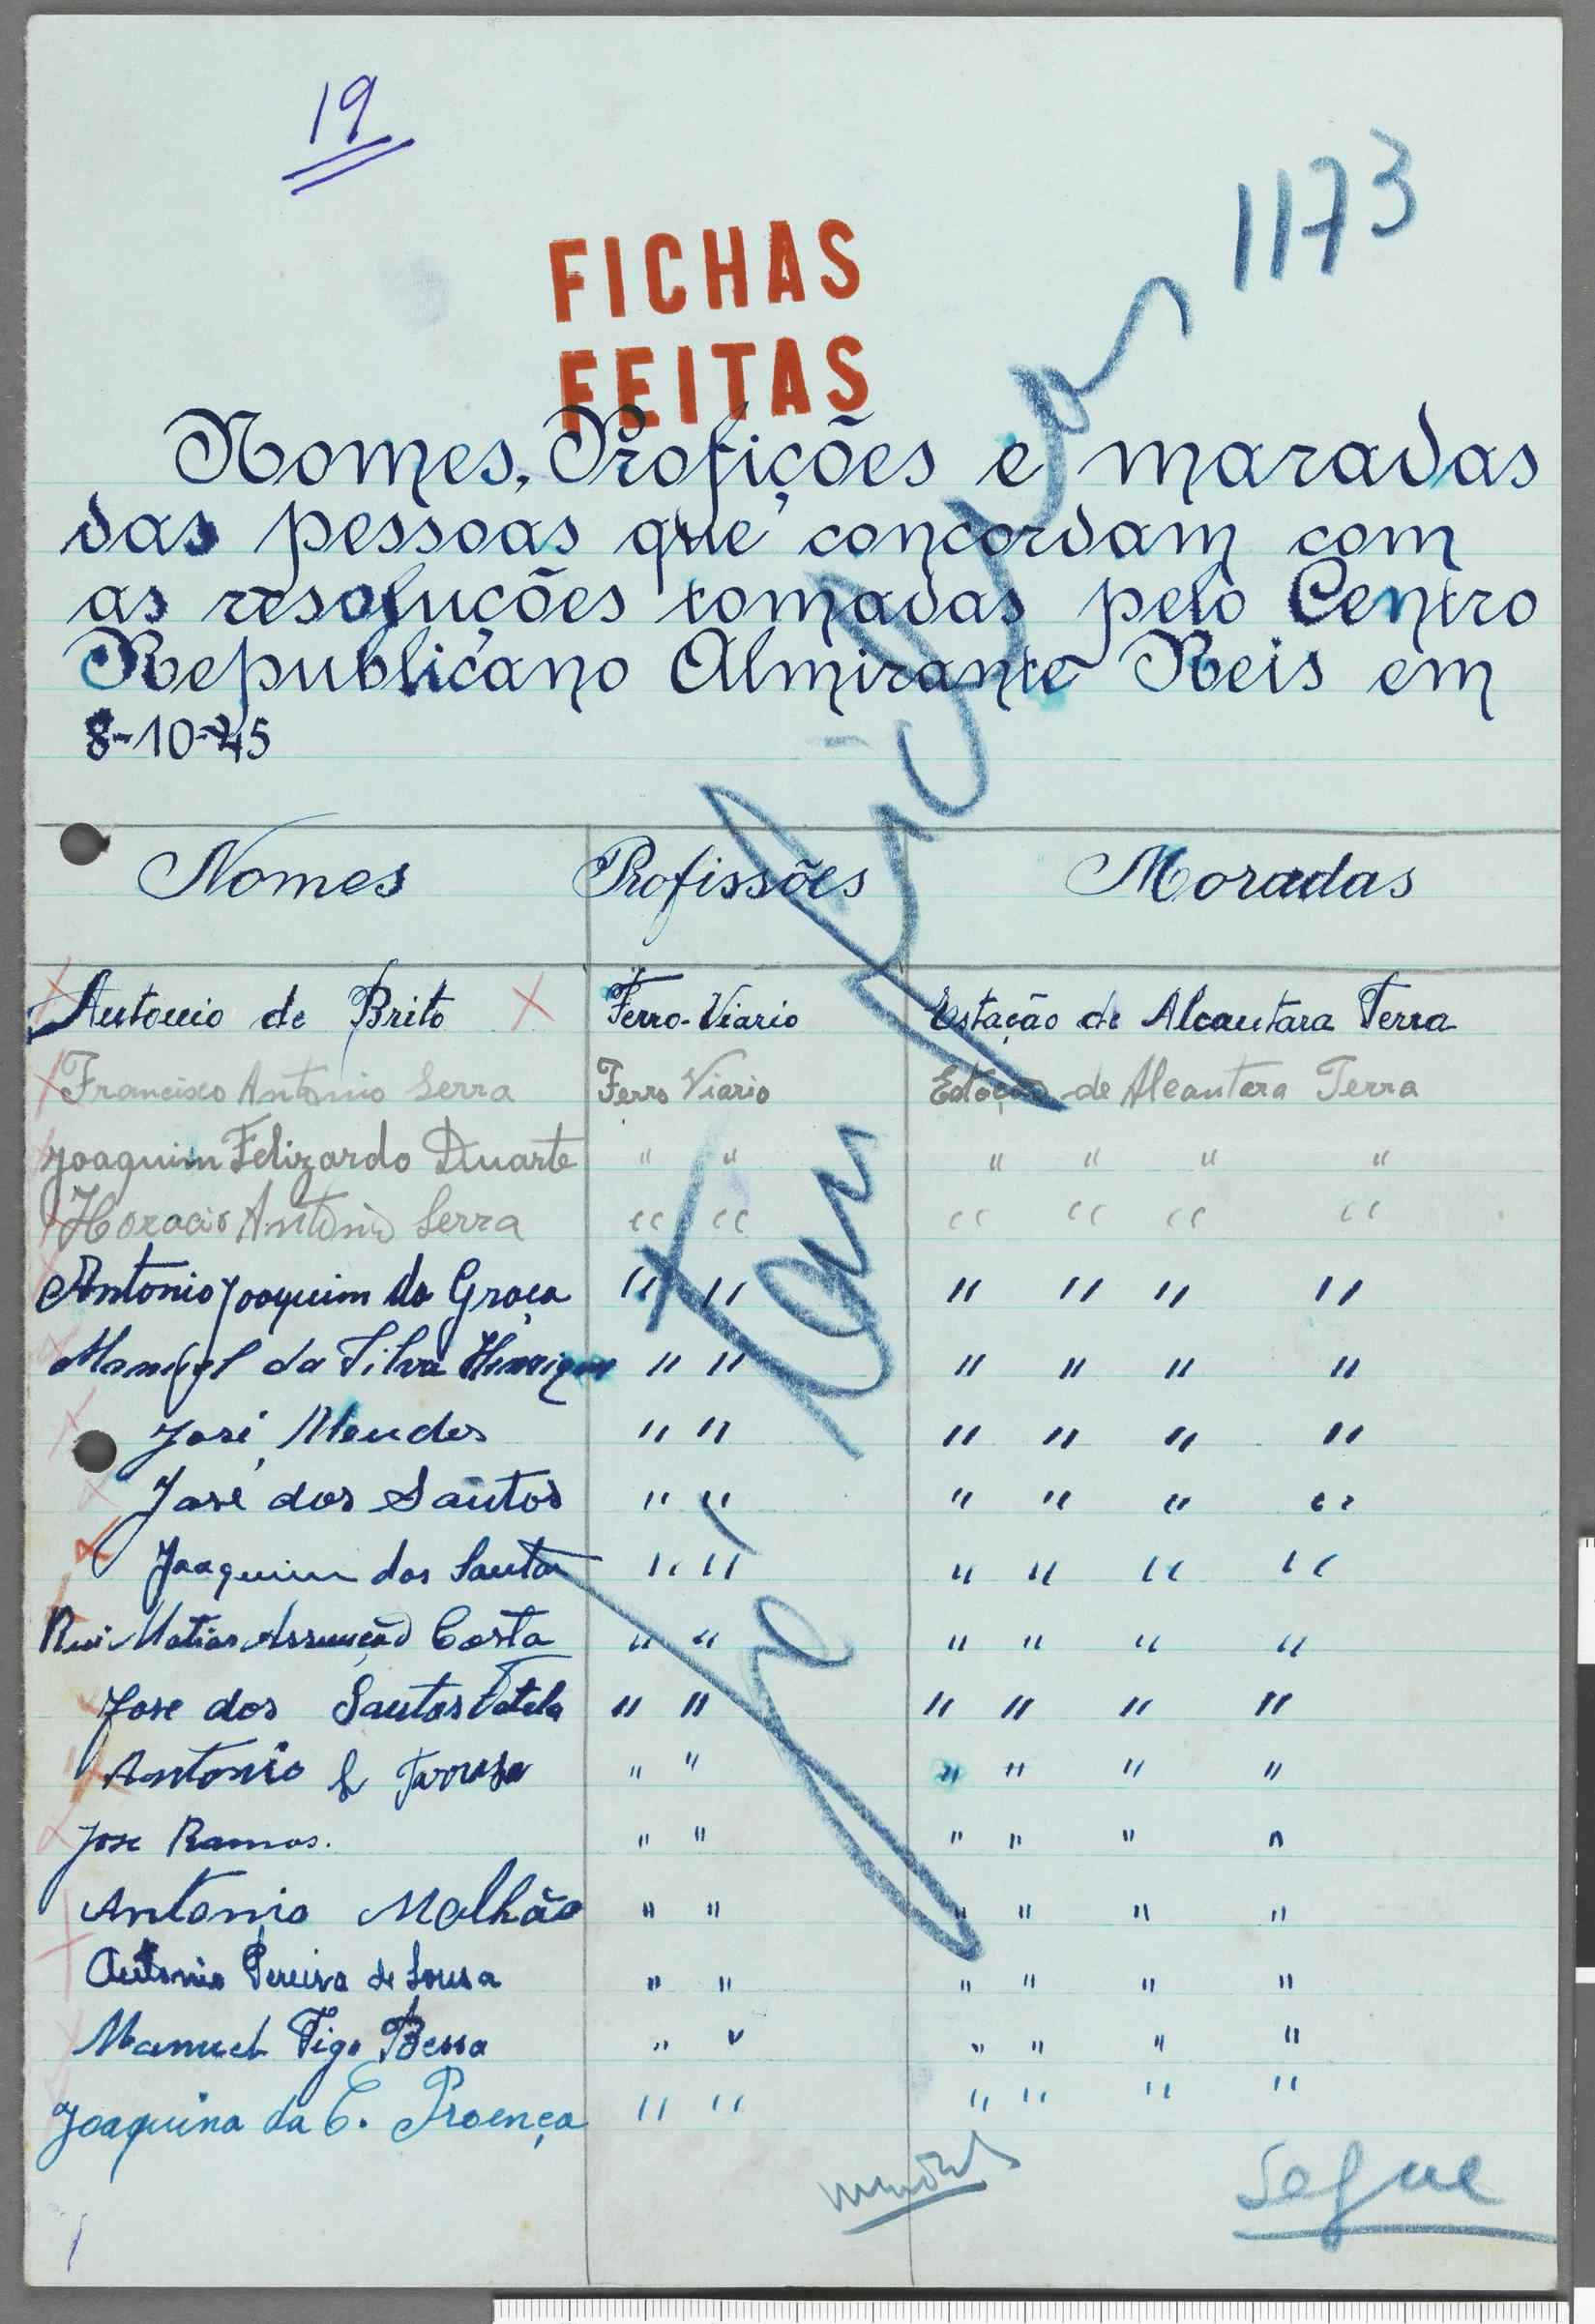 19
1173
FICHAS
FEITAS
Nomes, Profições e maradas
das pessoas que concordam com
as resoluções tomadas pelo Centro
Republicano Almirante Reis em
8-10-45
Nomes Profissões Moradas
Antonio de Brito Ferro-Viario Estação de Alcantara Terra
Francisco Antonio Serra Ferro Viario Estação de Alcantara Terra
Joaquim Felizardo Duarte " " " " " "
Horacio Antonio Serra " " " " " "
Antonio Joaquim da Graça " " " " " "
Manuel da Silva Henriques " " " " " "
José Mendes " " " " " "
José dos Santos " " " " " "
Joaquim dos Santos " " " " " "
Rui Matias Assunção Costa " " " " " "
Jose dos Santos " " " " " "
Antonio " " " " " "
Jose Ramos. " " " " " "
Antonio Malhão " " " " " "
Antonio Pereira de Sousa " " " " " "
Manuel Figo Bessa " " " " " "
Joaquina da C. Proença " " " " " "
Já tem fichas
Segue